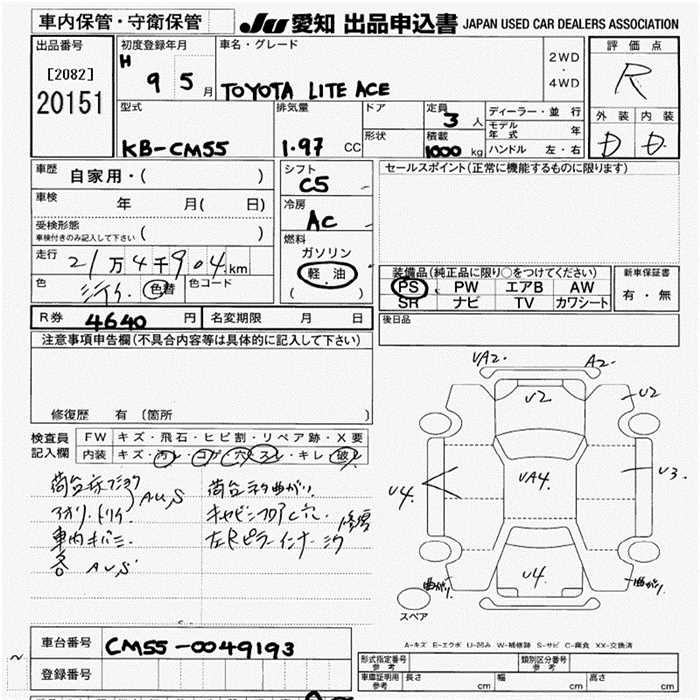 車内保管・守衛保管
JU 愛知 出品申込書 JAPAN USED CAR DEALERS ASSOCIATION
出品番号
[2082]
20151
初度登録年月
H 9 5 月
車名・グレード
TOYOTA LITE ACE
2WD
・
4WD
評価点
R
外装 内装
D D
型式
KB-CM55
排気量
1.97 CC
ドア
形状
定員
3 人
積載
1000 kg
ディーラー・並行
モデル年式 年
ハンドル 左・右
車歴
自家用・( )
車検
年 月( 日)
受検形態
車検付きのみ記入して下さい ( )
走行
21万4千904km
色
色替
色コード
シフト
C5
冷房
AC
燃料
ガソリン
軽油
( )
セールスポイント(正常に機能するものに限ります)
装備品(純正品に限り○をつけてください)
PS PW エアB AW
SR ナビ TV カワシート
新車保証書
有・無
後日品
R券 4640 円 名変期限 月 日
注意事項申告欄(不具合内容等は具体的に記入して下さい)
修復歴 有 〔箇所 〕
検査員記入欄
FW キズ・飛石・ヒビ割・リペア跡・X要
内装 キズ・汚レ・コゲ・穴・スレ・キレ・破レ
車内キバミ
各 AUS
VA2. A2.
U2 U2
U4 VA4. U3.
U4
曲がり 曲がり
スペア
A-キズ E-エクボ U-凹み W-補修跡 S-サビ C-腐食 XX-交換済
車台番号 CM55-0049193
登録番号
型式指定番号 参考
類別区分番号 参考
車庫証明用 参考 長さ cm 幅 cm 高さ cm